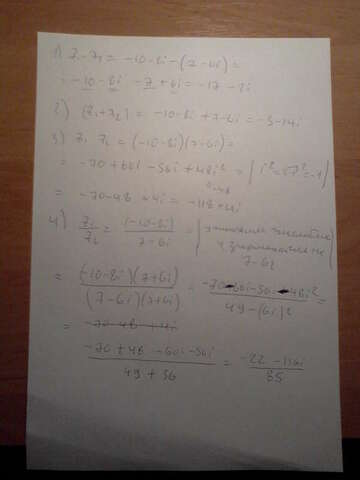 1) z₁-z₂ = -10-8i-(7-6i) =
= -10-8i -7+6i = -17-2i
2) (z₁+z₂) = -10-8i+7-6i = -3-14i
3) z₁ z₂ = (-10-8i)(7-6i) =
= -70+60i-56i+48i² = | i²=√1²=-1 |
= -70-48+4i = -118+4i
4) z₁/z₂ = (-10-8i)/(7-6i) = | числитель
и знаменатель на
7-6i
= (-10-8i)(7+6i)/(7-6i)(7+6i) = -70-60i-56i-48i²/49-(6i)² =
= -70-48
-70+48-60i-56i/49+36 = -22-116i/85